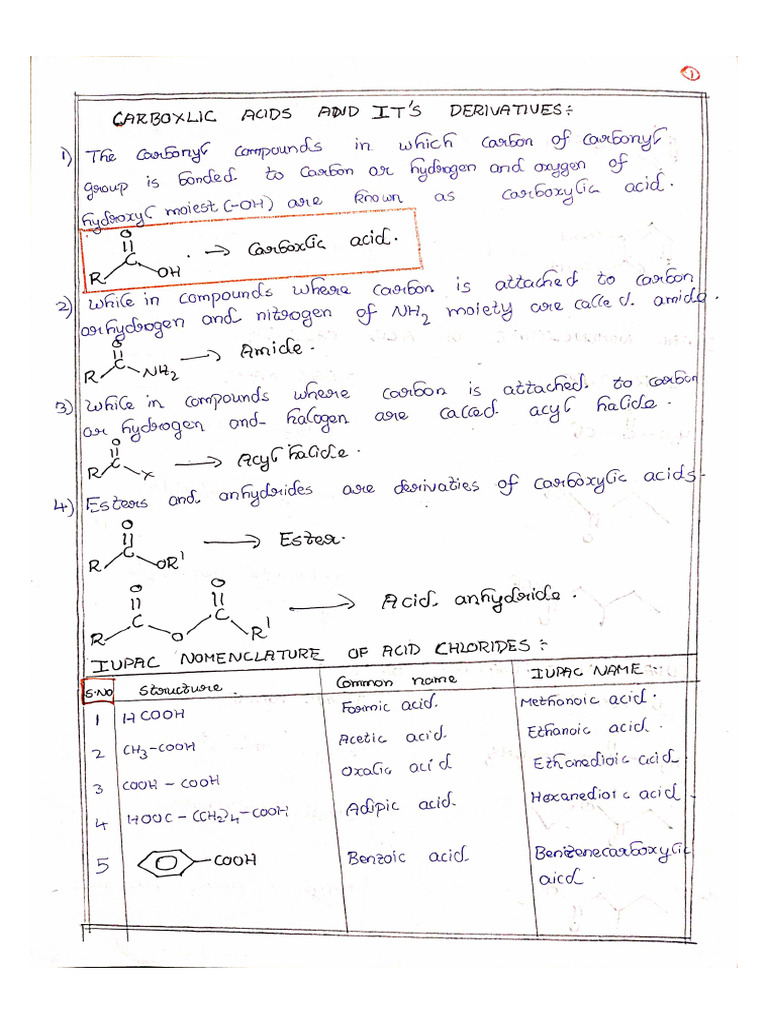 1
CARBOXLIC ACIDS AND IT'S DERIVATIVES:-
1) The carbonyl compounds in which carbon of carbonyl
group is bonded to carbon or hydrogen and oxygen of
hydroxyl moiest (-OH) are known as carboxylic acid.
O
R C OH → Carboxlic acid.
2) While in compounds where carbon is attached to carbon
or hydrogen and nitrogen of NH2 moiety are called amide.
O
R C NH2 → Amide.
3) While in compounds where carbon is attached to carbon
or hydrogen and halogen are called acyl halide.
O
R C X → Acyl halide.
4) Esters and anhydrides are derivaties of carboxylic acids.
O
R C OR' → Ester.
O O
R C O C R' → Acid anhydride.
IUPAC NOMENCLATURE OF ACID CHLORIDES:-
S.NO Structure. Common name IUPAC NAME:-
1 HCOOH Formic acid. Methanoic acid.
2 CH3-COOH Acetic acid. Ethanoic acid.
3 COOH - COOH Oxalic acid Ethanedioic acid
4 HOOC-(CH2)4-COOH Adipic acid. Hexanedioic acid.
5 COOH Benzoic acid. Benzenecarboxylic
aicd.